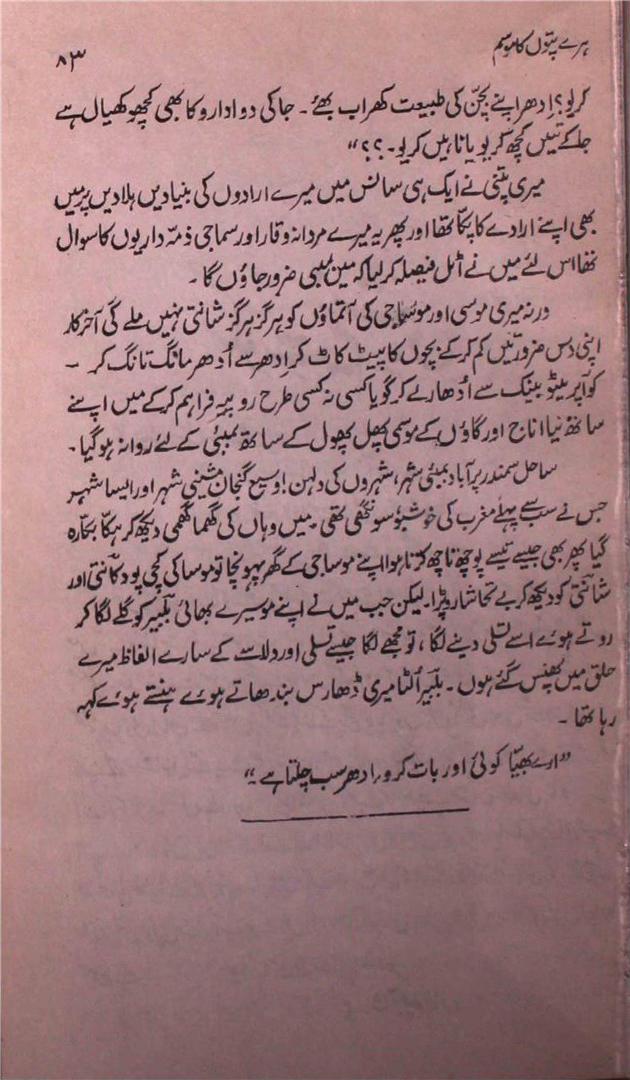 ہرے پتوں کا موسم
۸۳
کرلو؟ اِدھر اپنے بچّن کی طبیعت کھراب بھئے۔ جاکی دوا دارو کا بھی کچھو کھیال ہے
جاکے تئیں کچھ کریو یا ناہیں کریو۔؟؟“
میری پتنی نے ایک ہی سانس میں میرے ارادوں کی بنیادیں ہلا دیں پر میں
بھی اپنے ارادے کا پکّا تھا اور پھر یہ میرے مردانہ وقار اور سماجی ذمّہ داریوں کا سوال
تھا اس لئے میں نے اٹل فیصلہ کر لیا کہ میں بمبئی ضرور جاؤں گا۔
ورنہ میری موسی اور موساجی کی آتماؤں کو ہرگز ہرگز شانتی نہیں ملے گی آخر کار
اپنی دس ضرورتیں کم کرکے بچوں کا پیٹ کاٹ کر اِدھر سے اُدھر مانگ تانگ کر ۔
کوآپریٹو بینک سے اُدھار لے کر گویا کسی نہ کسی طرح روپیہ فراہم کرکے میں اپنے
ساتھ نیا اناج اور گاؤں کے موسمی پھل پھول کے ساتھ بمبئی کے لئے روانہ ہو گیا۔
ساحل سمندر پر آباد بمبئی شہر، شہروں کی دلہن! وسیع گنجان مشینی شہر اور ایسا شہر
جس نے سب سے پہلے مغرب کی خوشبو سونگھی تھی۔ میں وہاں کی گھما گھمی دیکھ کر ہکّا بکّا رہ
گیا پھر بھی جیسے تیسے پوچھ تاچھ کرتا ہوا اپنے موساجی کے گھر پہونچا تو موسا کی کچی پود کانتی اور
شانتی کو دیکھ کر بے تحاشا رو پڑا۔ لیکن جب میں نے اپنے موسیرے بھائی بلبیر کو گلے لگا کر
روتے ہوئے اسے تسلی دینے لگا، تو مجھے لگا جیسے تسلی اور دلاسے کے سارے الفاظ میرے
حلق میں پھنس گئے ہوں۔ بلبیر اُلٹا میری ڈھارس بندھاتے ہوئے ہنستے ہوئے کہہ
رہا تھا۔
”ارے بھیّا کوئی اور بات کرو، اِدھر سب چلتا ہے۔“